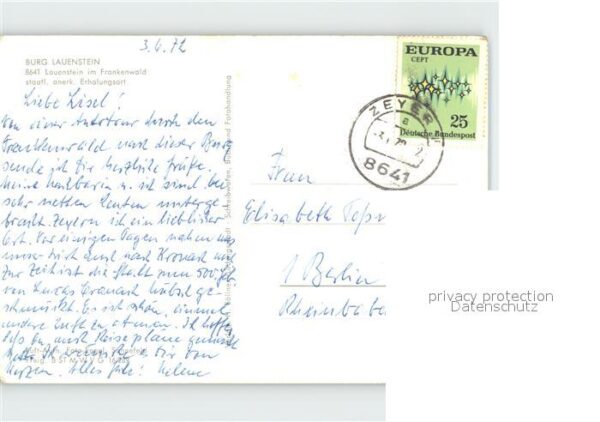 3.6.72
BURG LAUENSTEIN
8641 Lauenstein im Frankenwald
staatl. anerk. Erholungsort
Liebe Lisel!
Von einer Autotour durch den
Frankenwald nach dieser Burg
sende ich Dir herzliche Grüße.
Meine Nachbarin u. ich sind bei
sehr netten Leuten unterge-
bracht. Zeyern ist ein lieblicher
Ort. Vor einigen Tagen nahm uns
unser Wirt auch nach Kronach mit
Zur Zeit ist die Stadt zum 500 Jahr
von Lucas Cranach hübsch ge-
schmückt. Es ist schön, einmal
andere Luft zu atmen. Ich hoffe,
daß Du auch Reisepläne gemacht
hast. Ich wünsche es Dir von
Herzen. Alles Gute! Helene
EUROPA
CEPT
25
Deutsche Bundespost
ZEYERN
a
8641
Frau
Elisabeth
1 Berlin
Rheinba
privacy protection
Datenschutz